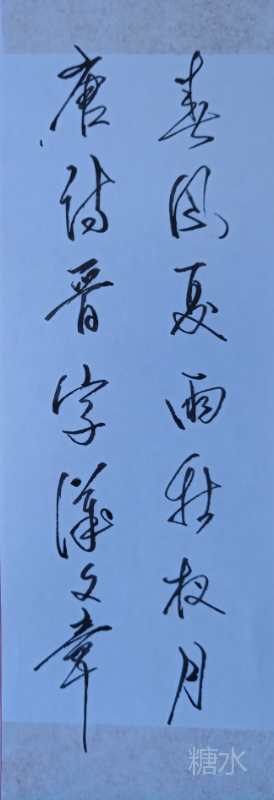 春风夏雨秋夜月
唐诗晋字漢文章
糖水